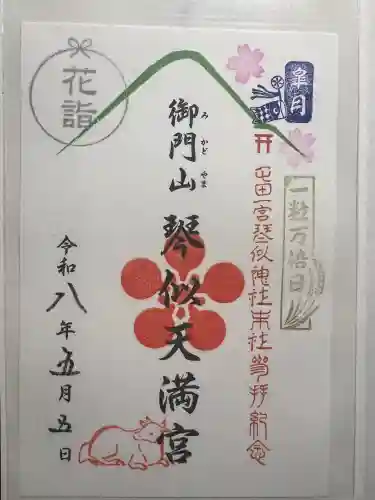 皐月
一粒万倍日
屯田一宮琴似神社末社参拝紀念
御門山琴似天満宮
みかどやま
花詣
令和八年五月五日